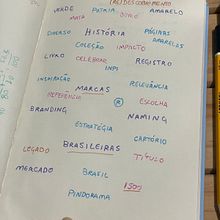 (RE)DESCOBRIMENTO
VERDE PÁTRIA AMARELO
MAPA OURO
DIVERSO HISTÓRIA PÁGINAS AMARELAS
COLEÇÃO IMPACTO
LIVRO CELEBRAR REGISTRO
INPI
INSPIRAÇÃO RELEVÂNCIA
MARCAS
REFERÊNCIA ® ESCOLHA
BRANDING NAMING
ESTRATÉGIA CARTÓRIO
LEGADO BRASILEIRAS TÍTULO
MERCADO BRASIL 1500
PINDORAMA